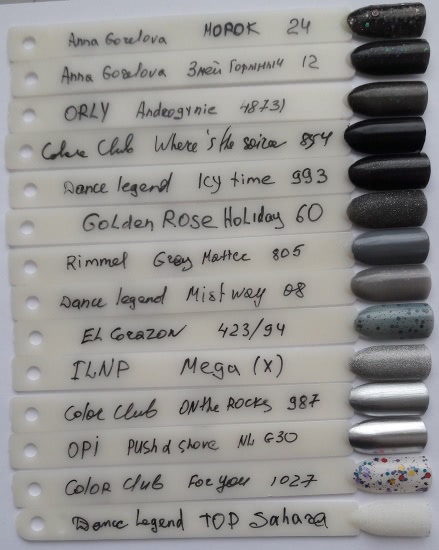 Anna Gorelova МОРОК 24
Anna Gorelova Змей Горыныч 12
ORLY Androgynie 48731
Color Club Where's the soiree 854
Dance legend Icy time 993
GOLDEN ROSE HOLIDAY 60
Rimmel Grey Matter 805
Dance legend Mist way 08
EL CORAZON 423/94
ILNP Mega (X)
Color Club ON the Rocks 987
OPI Push & shove NL G30
COLOR Club For you 1027
Dance Legend TOP Sahara